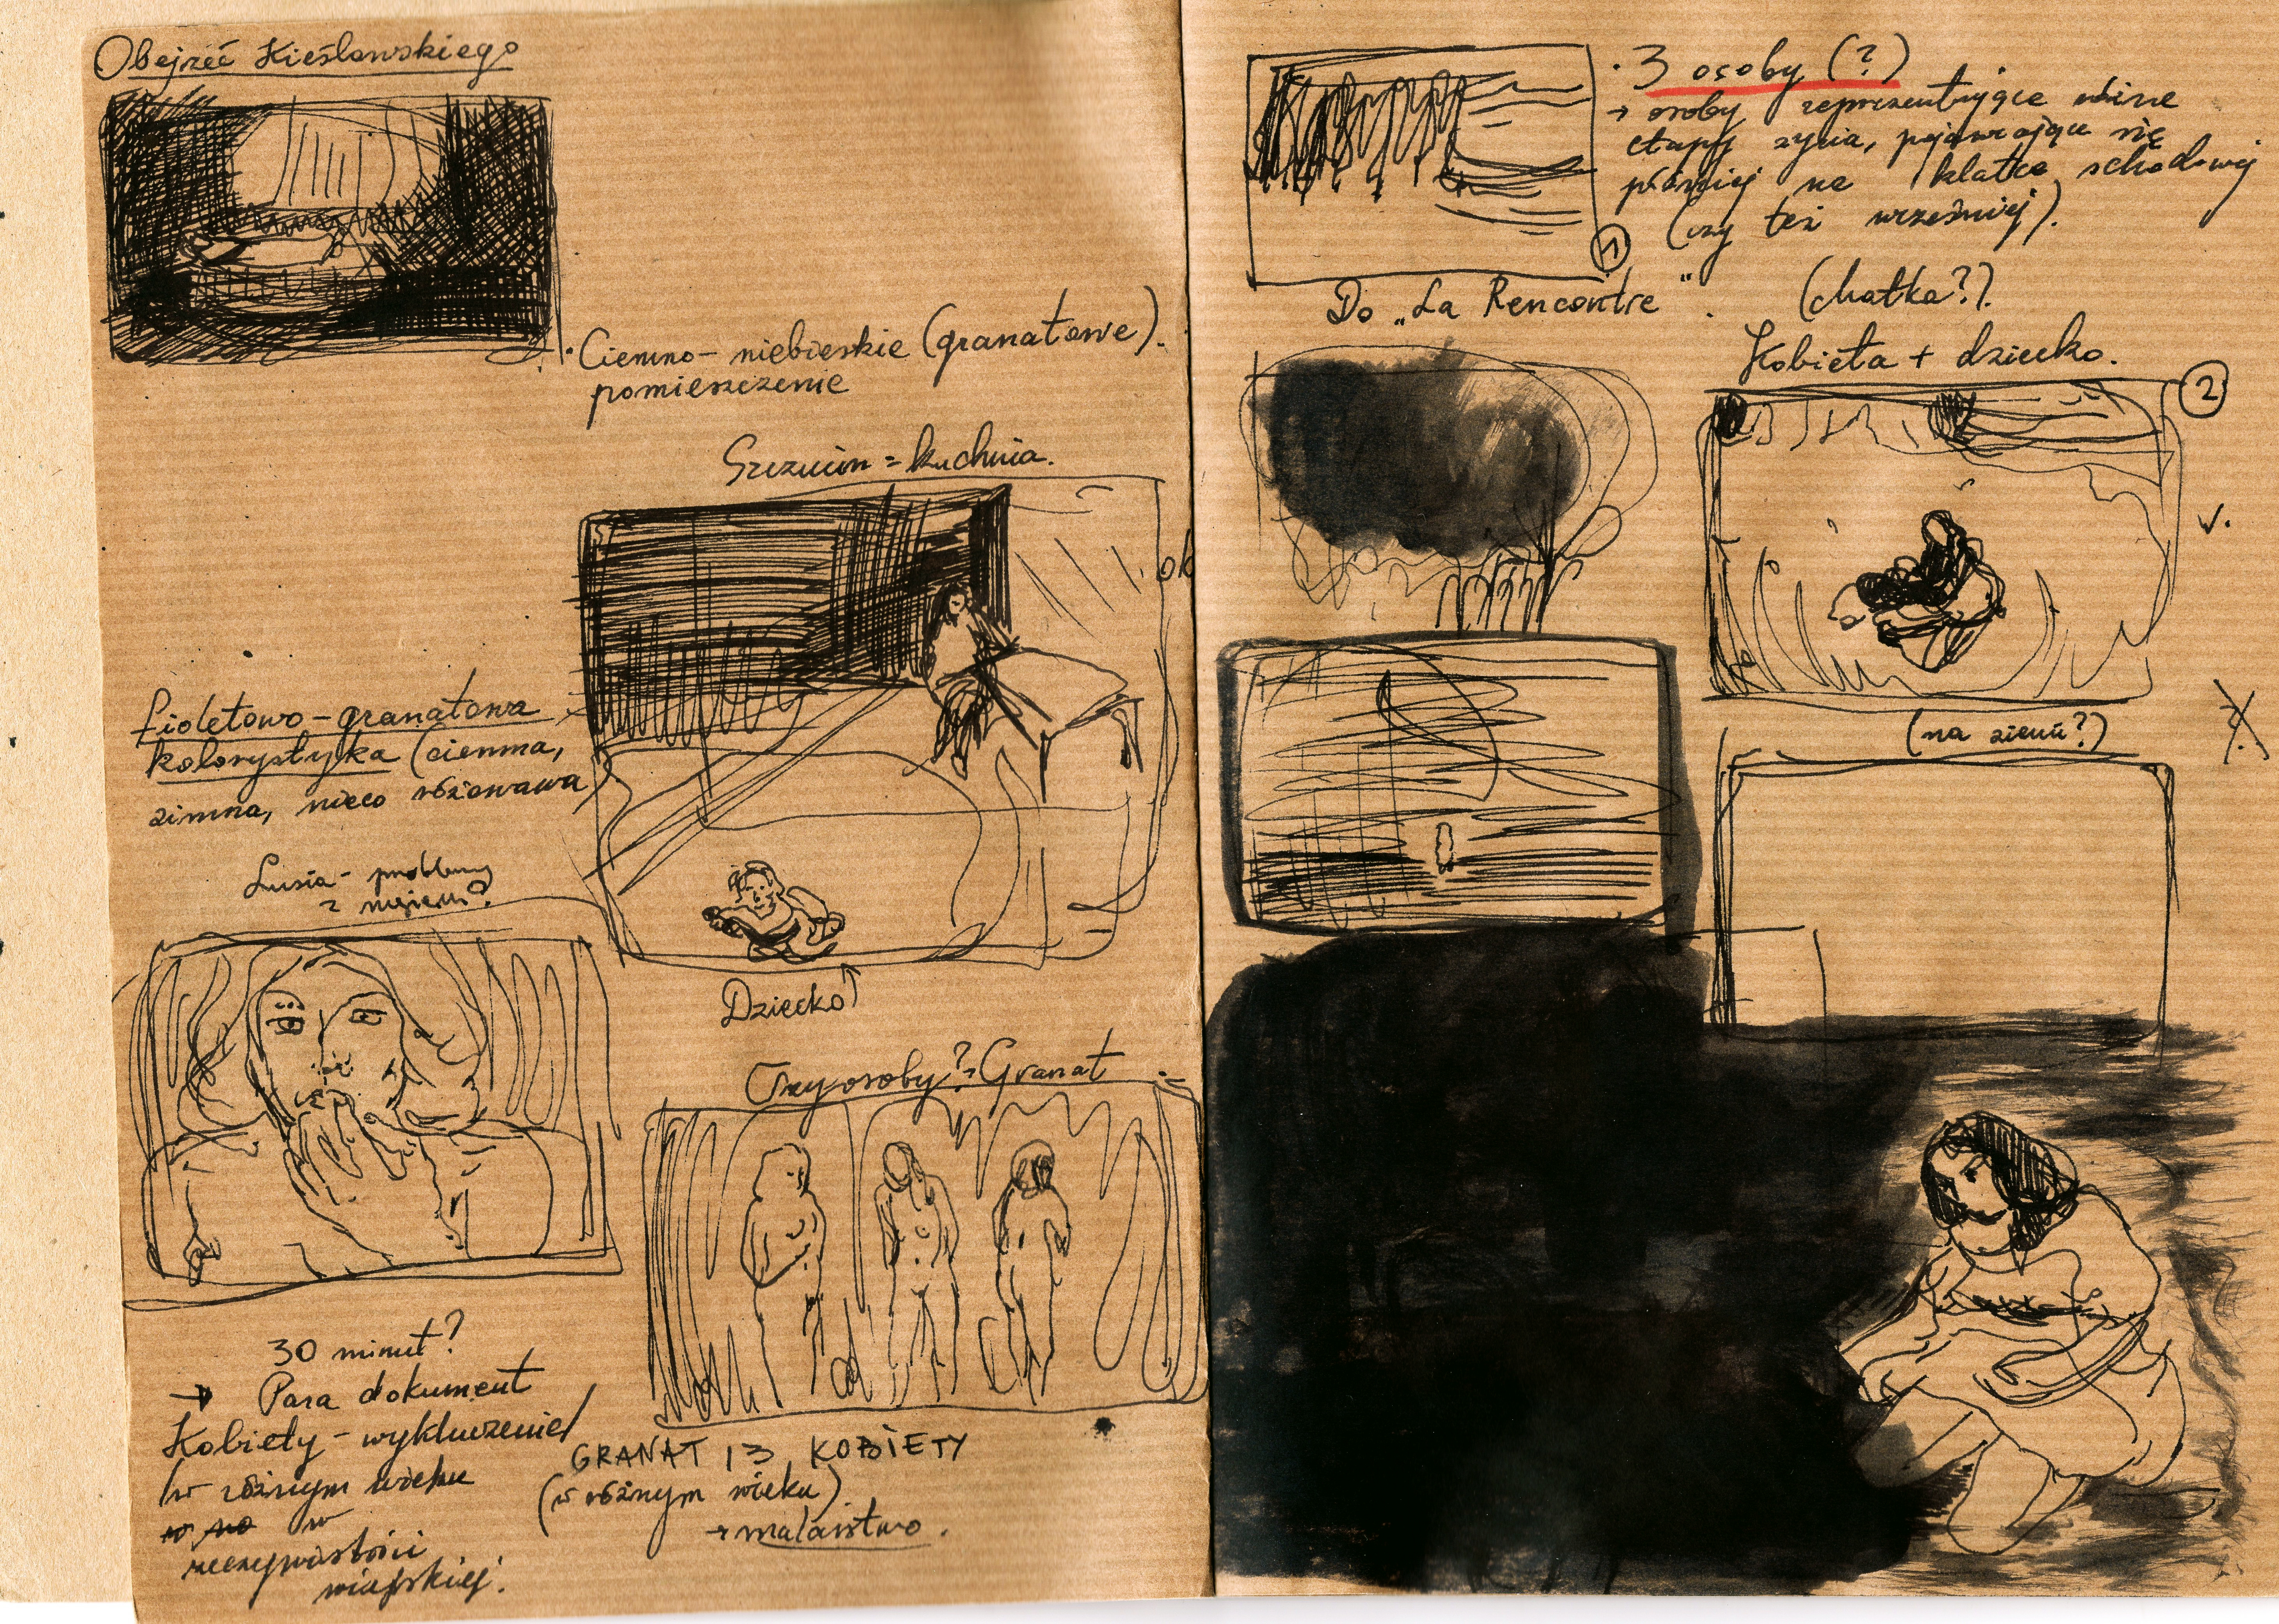 Obejrzéć Kieślowskiego
Ciemno-niebieskie (granatowe).
pomieszczenie
= kuchnia.
ok
Fioletowo-granatowa
kolorystyka (ciemna,
zimna, nieco różowawa)
Lusia - problemy
z mężem?
Dziecko
Trzy osoby? = Granat
30 minut?
→ Para dokument
Kobiety - wykluczenie
w różnym wieku
w
rzeczywistości
wiejskiej.
GRANAT 13 KOBIETY
(w różnym wieku)
→ malarstwo.
• 3 osoby (?)
→ osoby reprezentujące różne
etapy życia, pojawiające się
później na klatce schodowej
(czy też wcześniej).
1
Do „La Rencontre".
(chatka?).
Kobieta + dziecko.
2
v.
(na ziemi?)